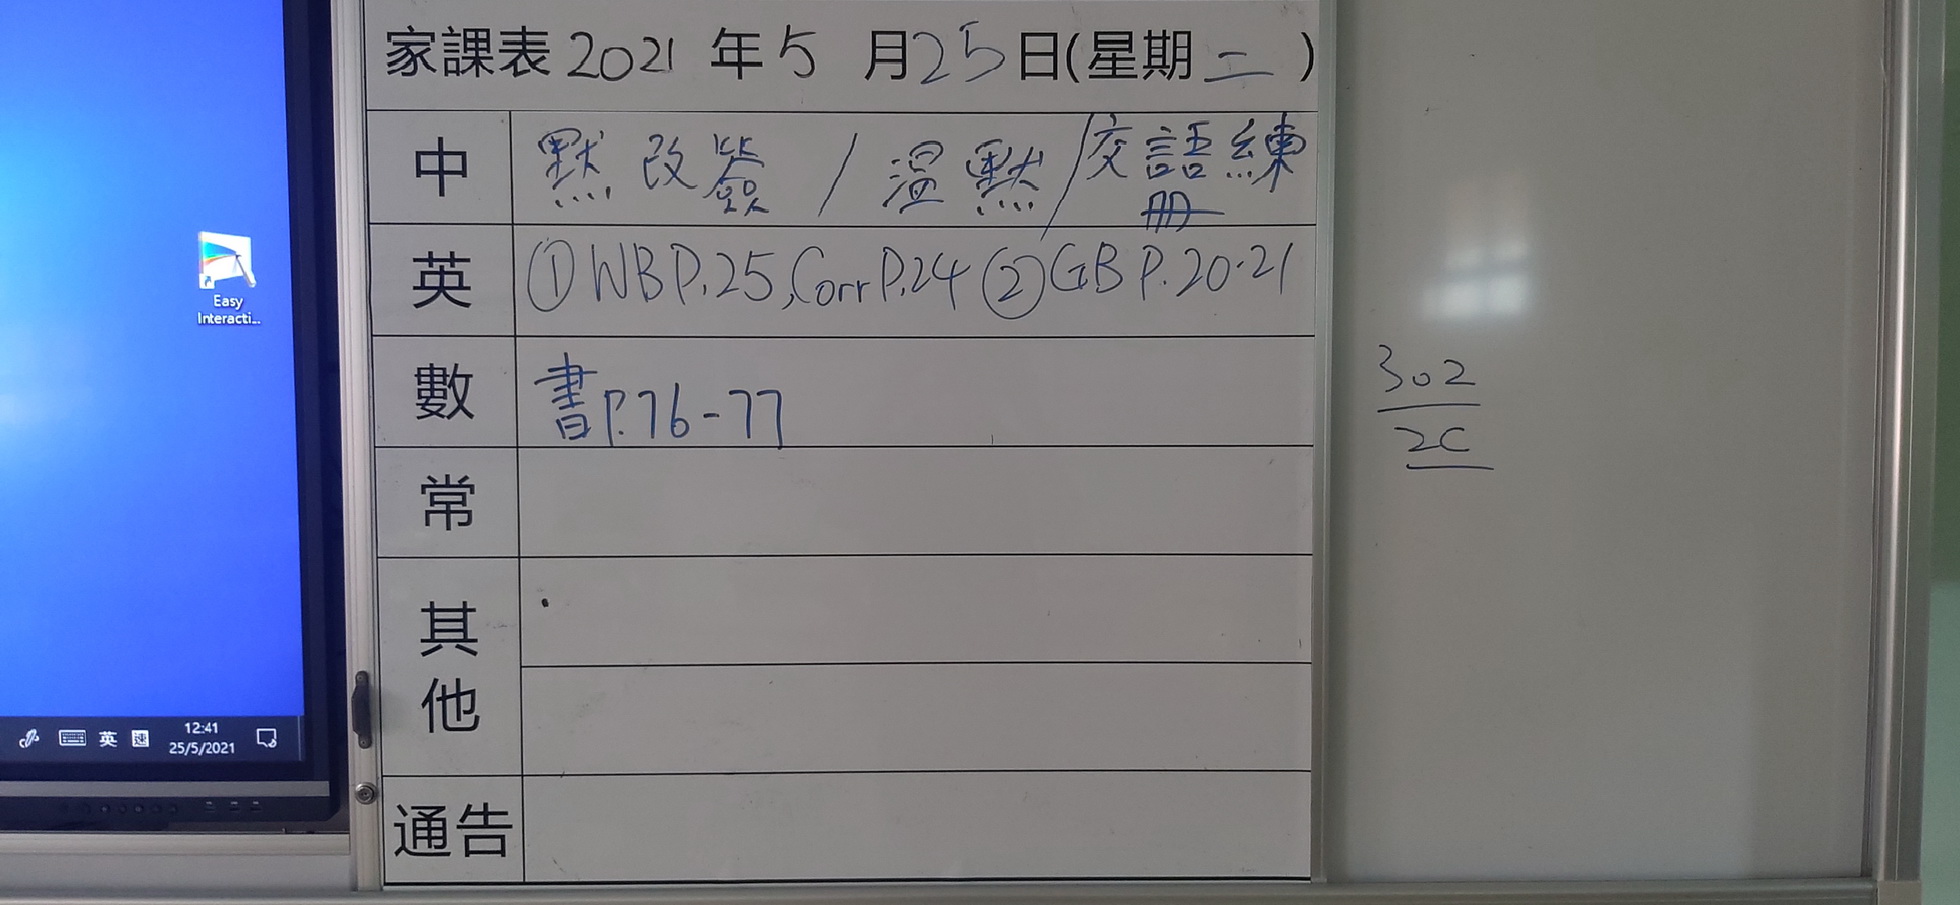 家課表 2021 年 5 月 25 日(星期 二 )
中 默改簽 / 溫默 / 交語練冊
英 ① WB P.25, Corr P.24 ② GB P.20-21
數 書 P.76-77
常
其他
通告
302
2C
Easy
Interacti...
英 速
12:41
25/5/2021